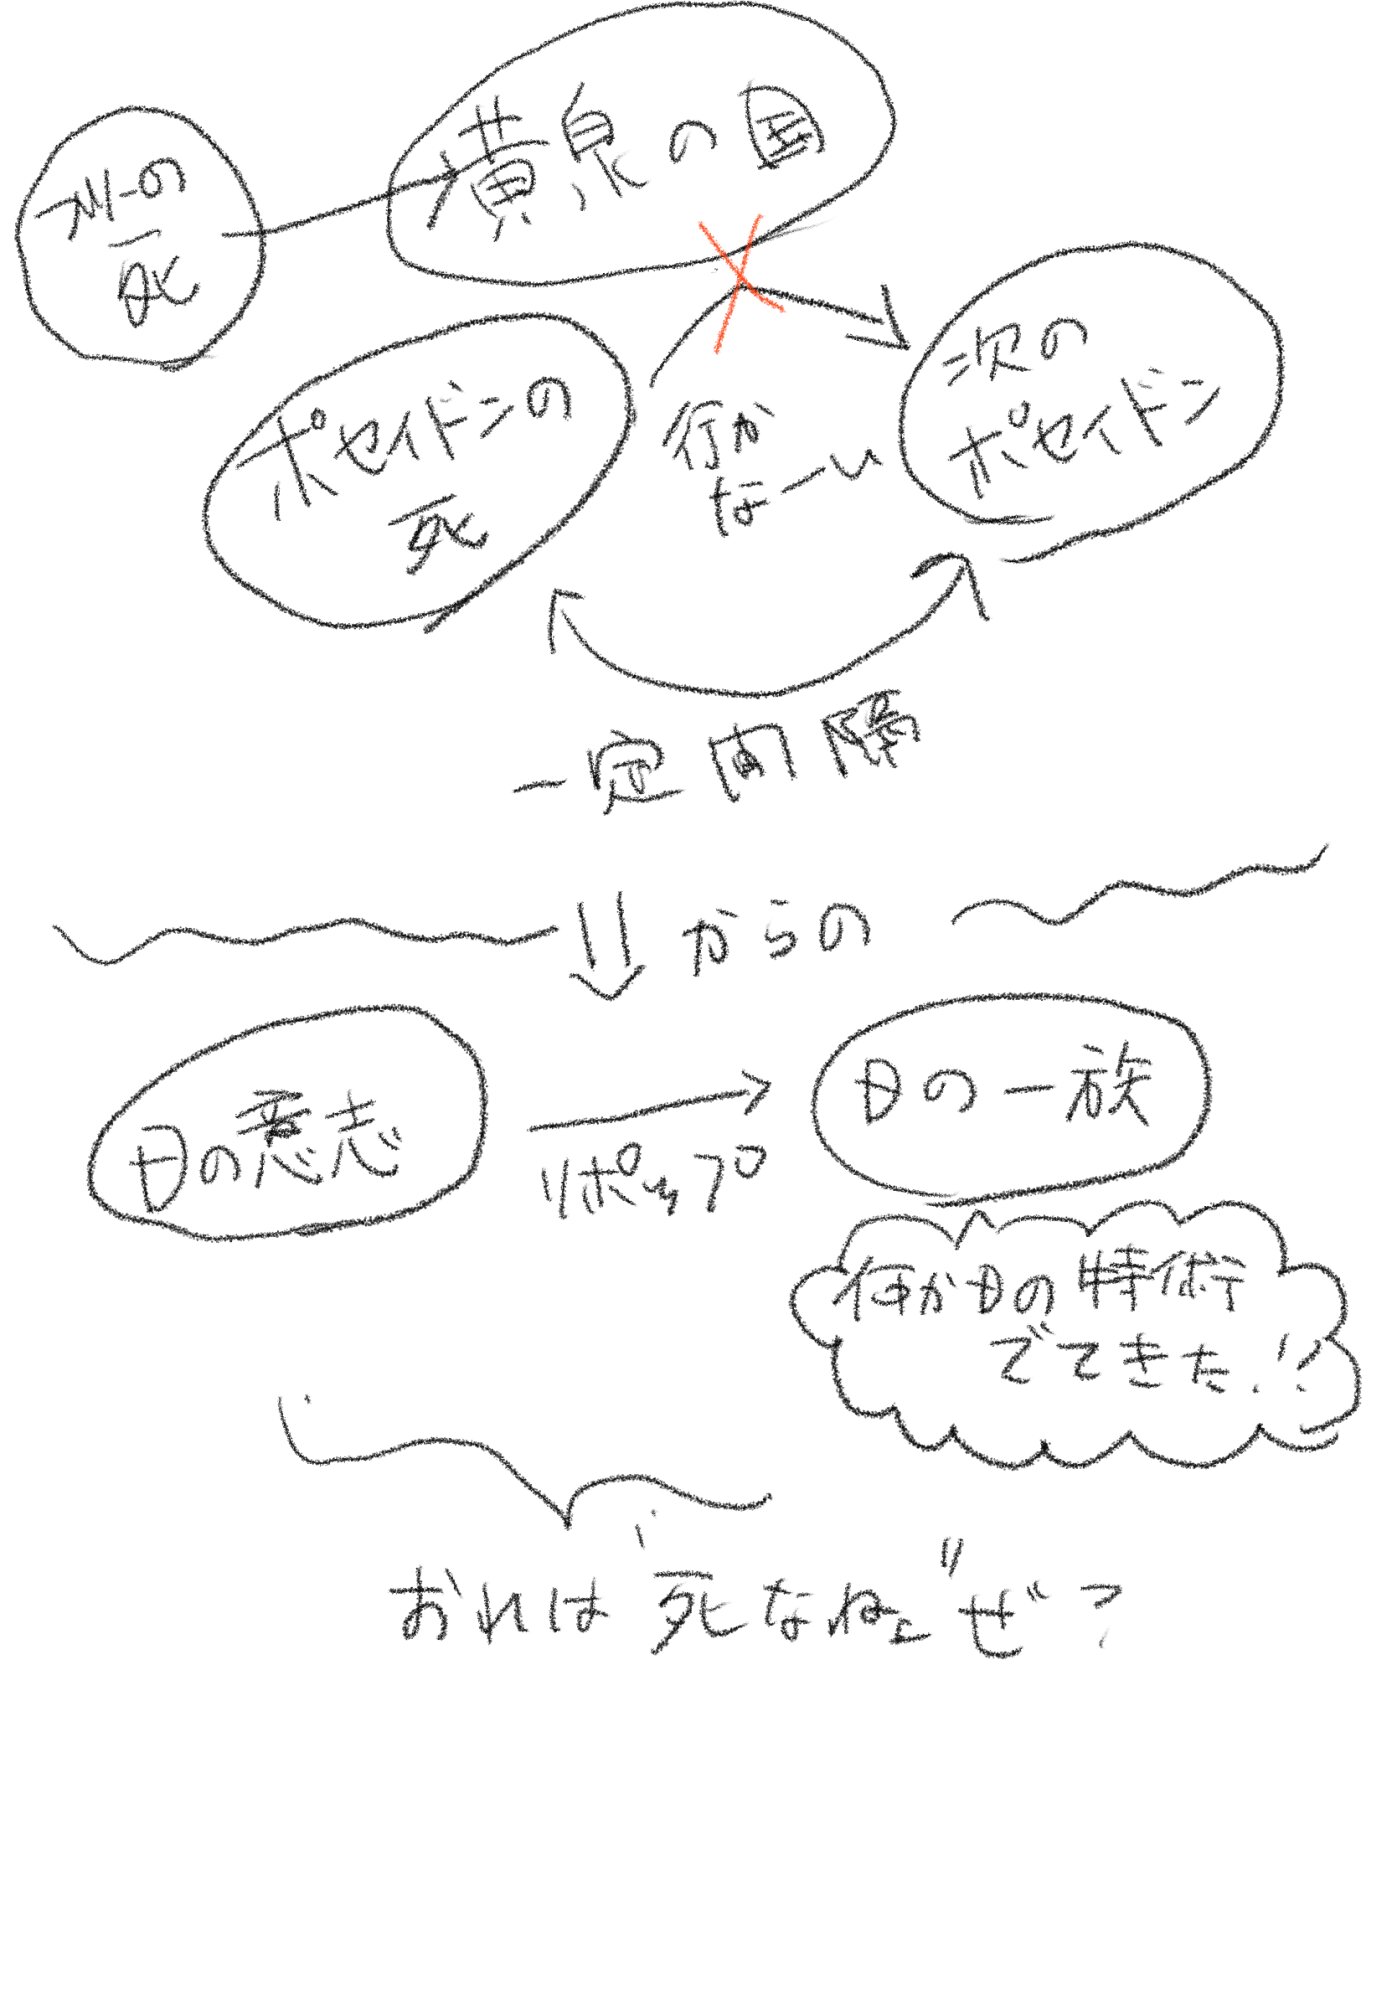 黄泉の国
ブルックの
死
次の
ポセイドン
ポセイドンの
死
行か
なーい
一定間隔
からの
Dの意志
リポップ
Dの一族
何かDの特術
でできた!?
おれは"死なねェ"ぜ?